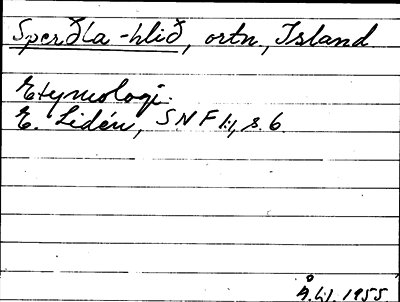 Sperðla-hlið, ortn., Island
Etymologi.
E. Lidén, SNF 1:1, s. 6.
Å.L:j. 1955